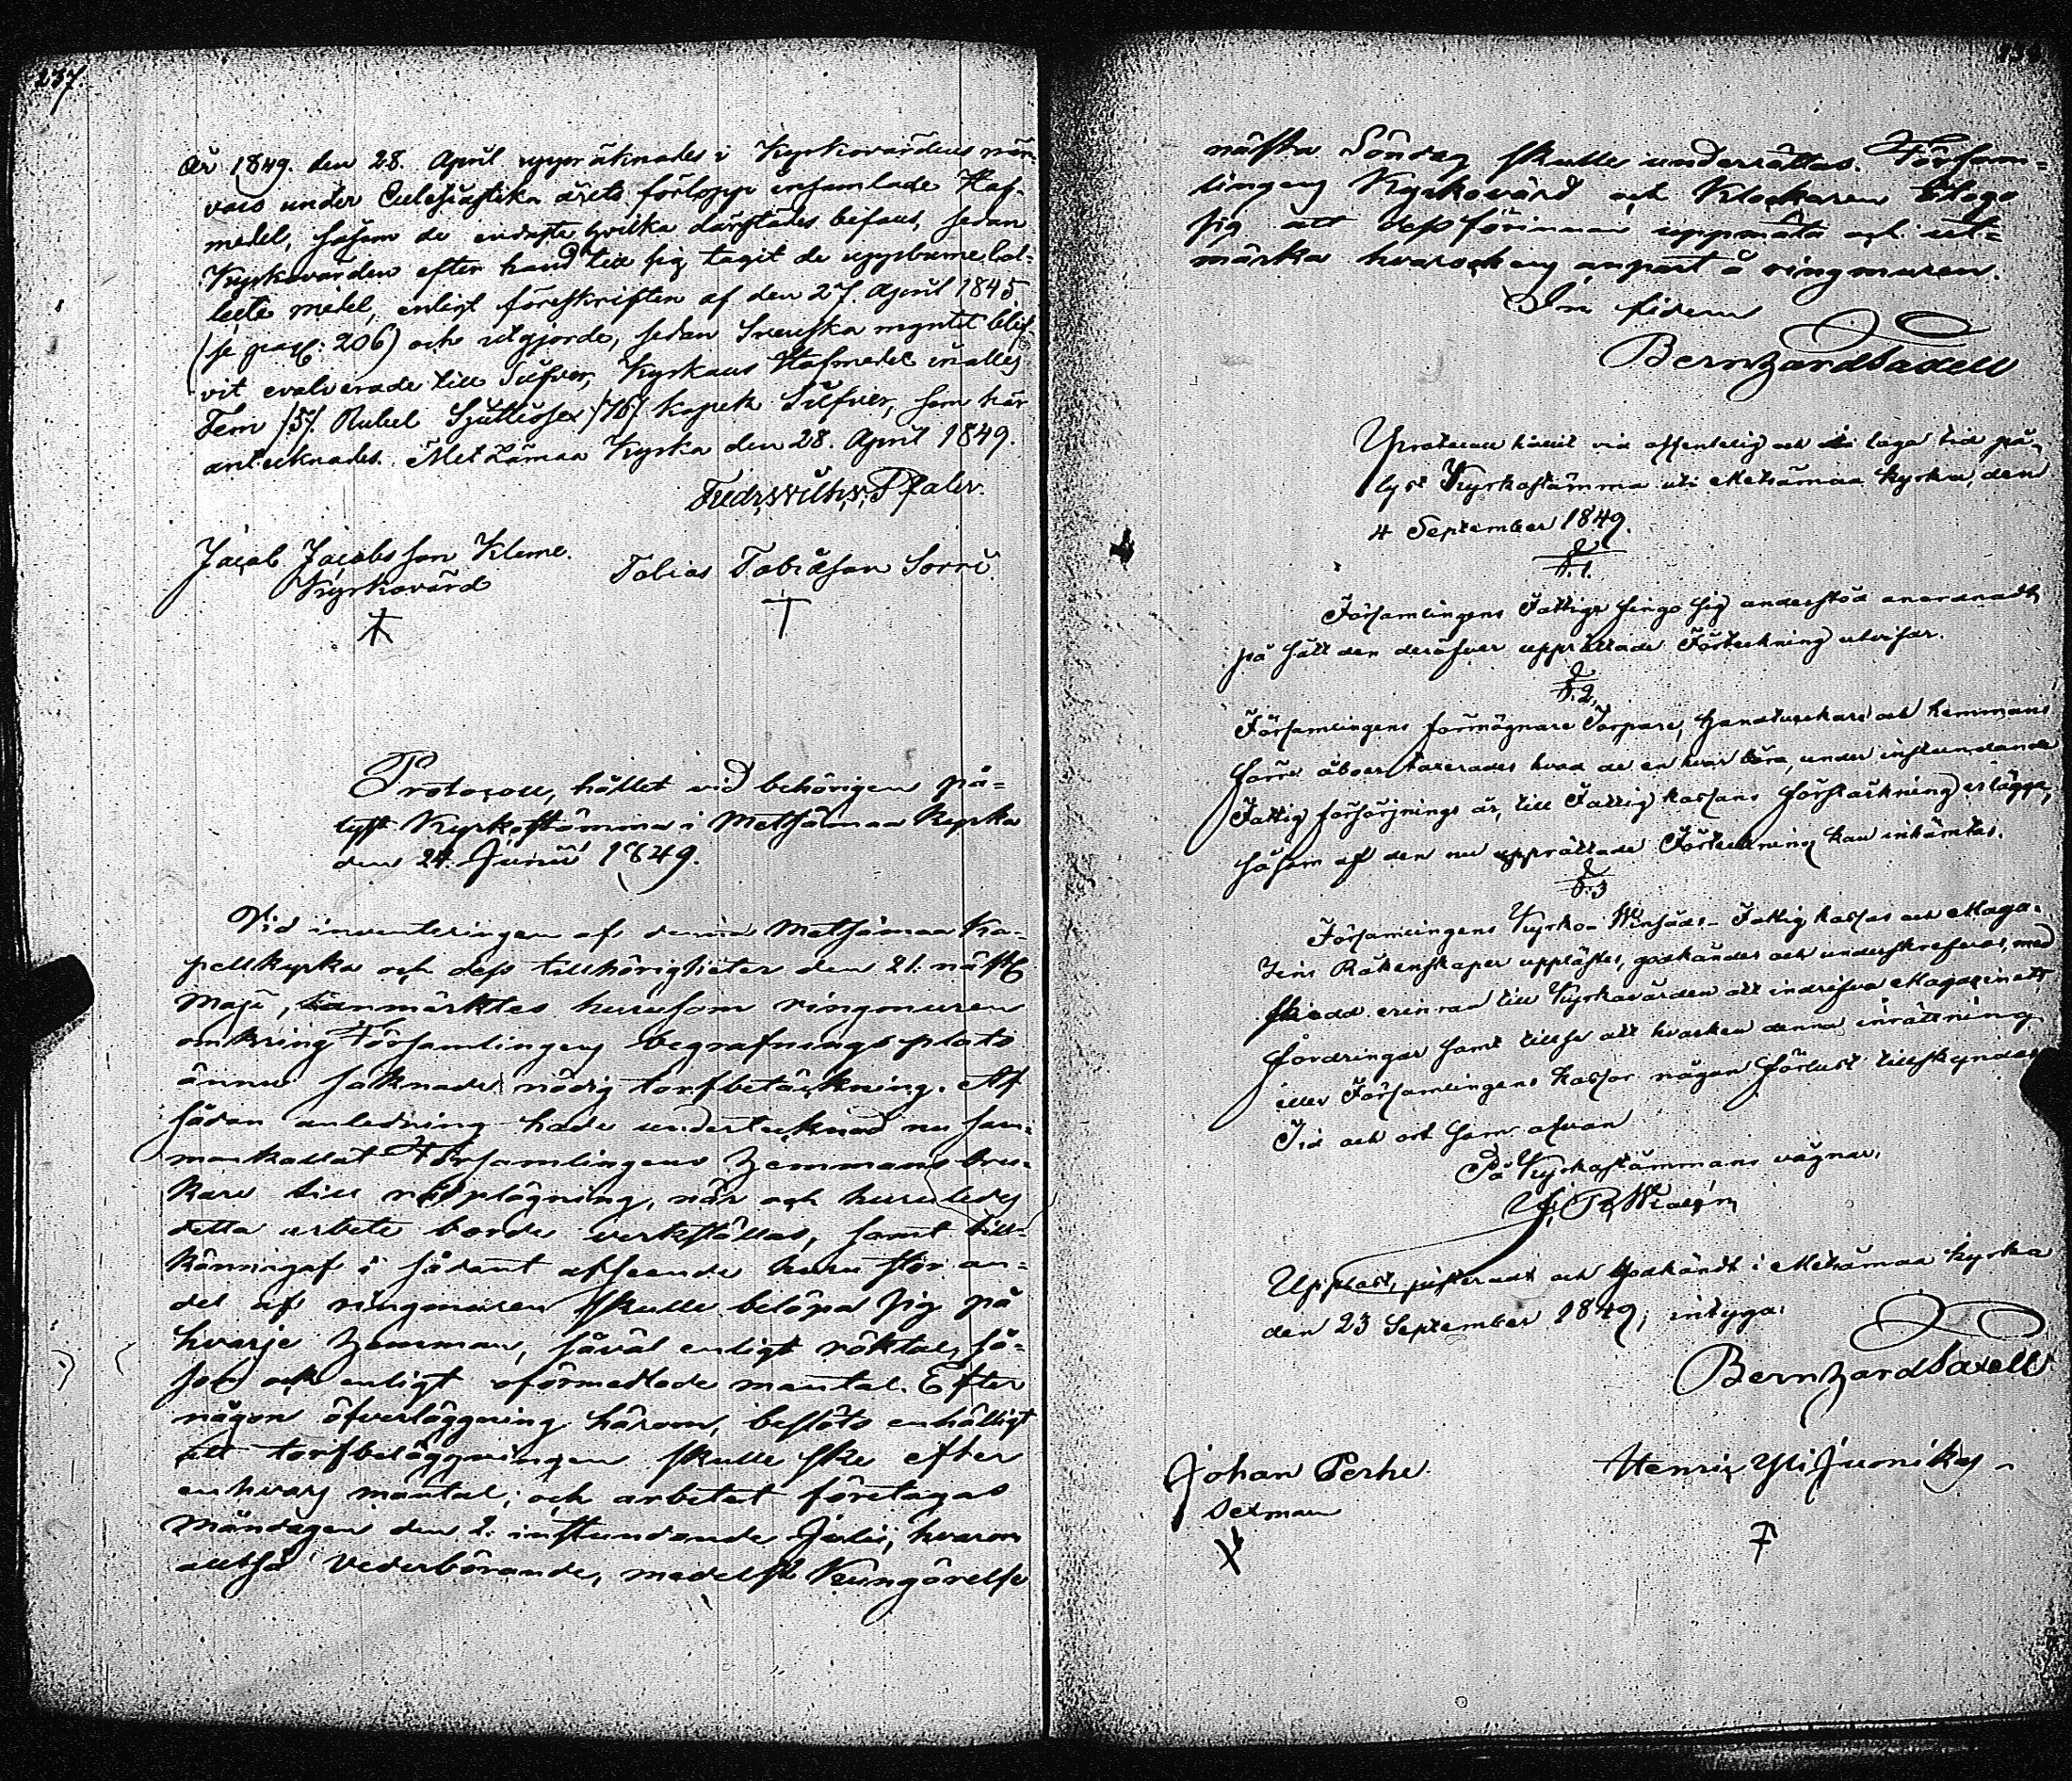 237.
År 1849. den 28. April uppräknades i Kyrkovärdens när-
varo under Ecclesiastika årets förlopp insamlade Haf-
medel, såsom de endaste hvilka därstädes befans, sedan
Kyrkovärden efter hand till sig tagit de uppburne Col-
lecte medel, enligt föreskriften af den 27. April 1845
(se pag: 206) och utgjorde, sedan Svenska myntet blif-
vit evalverade till Silfver, Kyrkans Hafmedel inalles
Fem /5/. Rubel Sjuttiosex /76/ Kopek Silfver, som här
antecknades. Metzämaa Kyrka den 28. April 1849.
Pfaler.
Jacob Jacobsson Kleme.
Kyrkovärd
Tobias Tobiasson Sorri.
Protocoll, hållet vid behörigen på-
lyst Kyrkostämma i Metsämaa Kyrka
den 24. Junii 1849.
Vid inventeringen af denna Metsämaa Ka-
pellkyrka och dess tillhörigheter den 21. nästl.
Maji, anmärktes hurusom ringmuren
omkring Församlingens begrafningsplats
ännu saknade nödig torfbetäckning. Af
sådan anledning hade undertecknad nu sam-
mankallat Församlingens Hemmans bru-
kare till rådplägning, när och huruledes
detta arbete borde verkställas, samt till-
känningaf i sådant afseende huru stor an-
del af ringmuren skulle belöpa sig på
hvarje Hemman, såväl enligt röktal, så-
som och enligt oförmedlade mantal. Efter
någon öfverläggning härom, beslöts enhälligt
att torfbeläggningen skulle ske efter
enhvars mantal; och arbetet företagas
Måndagen den 2. instundande Julii, hvarom
alltså Vederbörande, medelst Kungörelse
nästa Söndag skulle underrättas. Försam-
lingens Kyrkovärd och Klockaren åtogo
sig att dessförinnan uppmäta och ut-
märka hvars och ens anpart å ringmuren.
In fidem
Bernhard Saxell
Protocoll hållit vid offentelig och i laga tid på-
lyst Kyrkostämma uti Metsämaa Kyrka, den
4 September 1849.
§.1.
Församlingens Fattige fingo sig understöd anordnadt
på sätt den deröfver upprättade Förteckning utvisar.
§.2.
Församlingens förmögnare Torpare, Handtverkare och Hemmans
åboer taxerades hvad de en hvar böra, under instundande
Fattig försörjnings år, till Fattig kassans förstärkning erlägga,
såsom af den nu upprättade Förteckning kan inhämtas.
§.3
Församlingens Kyrko- Fattig kassas och Maga-
zins Räkenskaper upplästes, godkändes och underskrefvos, med
skiedd erinran till Kyrkovärden att indrifva Magazinets
fordringar samt tillse att hvarken denna inrättning
eller Församlingens kassor någon förlust tillskyndas.
Tid och ort som ofvan
På Kyrkostämmans vägnar.
Uppläst, justeradt och Godkändt i Metsämaa Kyrka
den 23 September 1849; intyga:
Bernhard Saxell
Johan Perhe.
Sexman
Henric Yli Juonikas